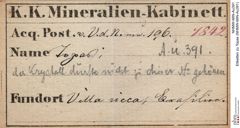 K.K. Mineralien-Kabinett.
Acq. Post. v. d. Nüll 196. 1542
Name Topas; A.a. 391.
der Krystall dürfte nicht zu dieser No gehören
Fundort Villa ricca, Brasilien.